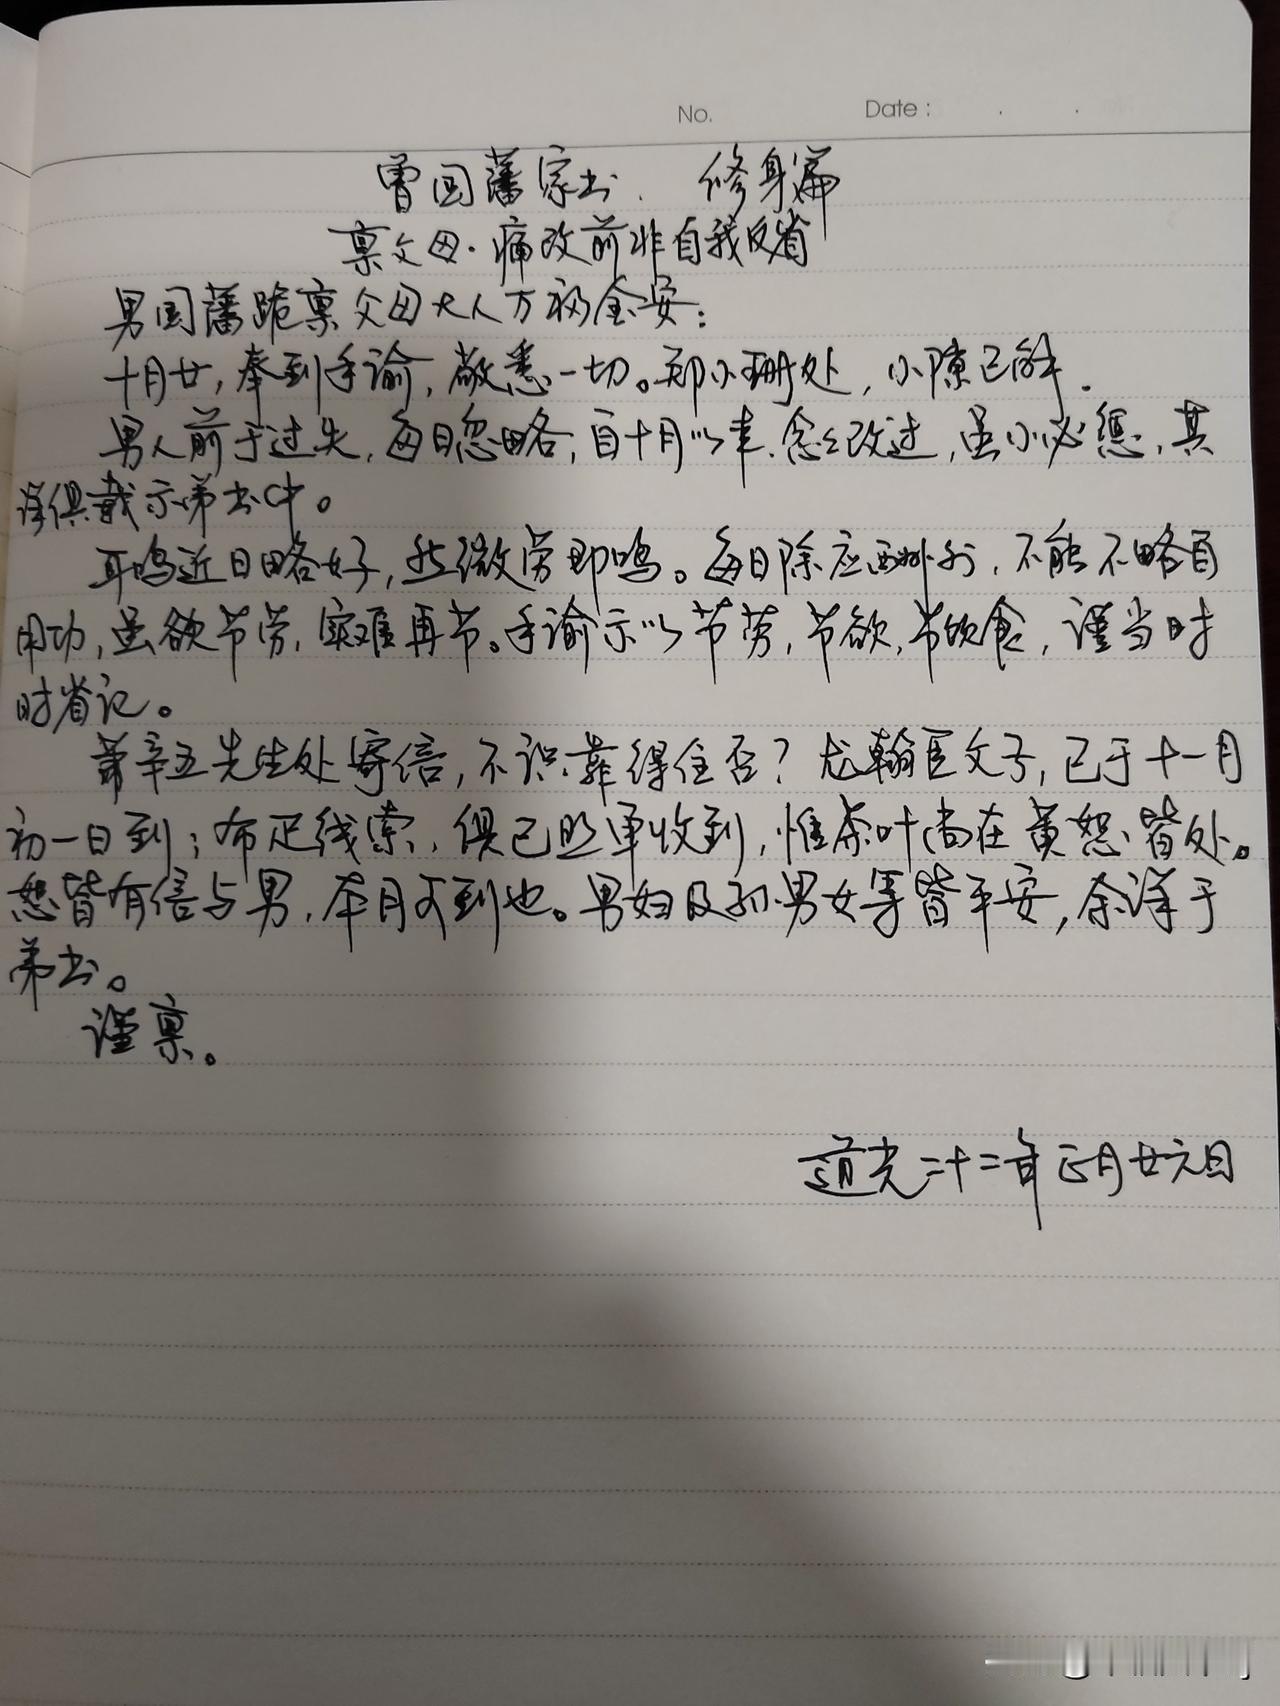 No.  Date :
曾国藩家书. 修身篇
禀父母·痛改前非自我反省
男国藩跪禀父母大人万福金安：
十月廿，奉到手谕，敬悉一切。郑小珊处，小隙已解.
男人前于过失，每日忽略，自十月以来.念念改过，虽小必惩，其
详俱载示弟书中。
耳鸣近日略好，然微劳即鸣。每日除应酬外，不能不略自
用功，虽欲节劳，实难再节。手谕示以节劳，节欲，节饮食，谨当时
时省记。
萧辛五先生处寄信，不识靠得住否？龙翰臣父子，已于十一月
初一日到；布疋线索，俱已照单收到，惟茶叶尚在黄恕皆处。
恕皆有信与男，本月可到也。男妇及孙男女等皆平安，余详于
弟书。
谨禀。
道光二十二年正月廿六日